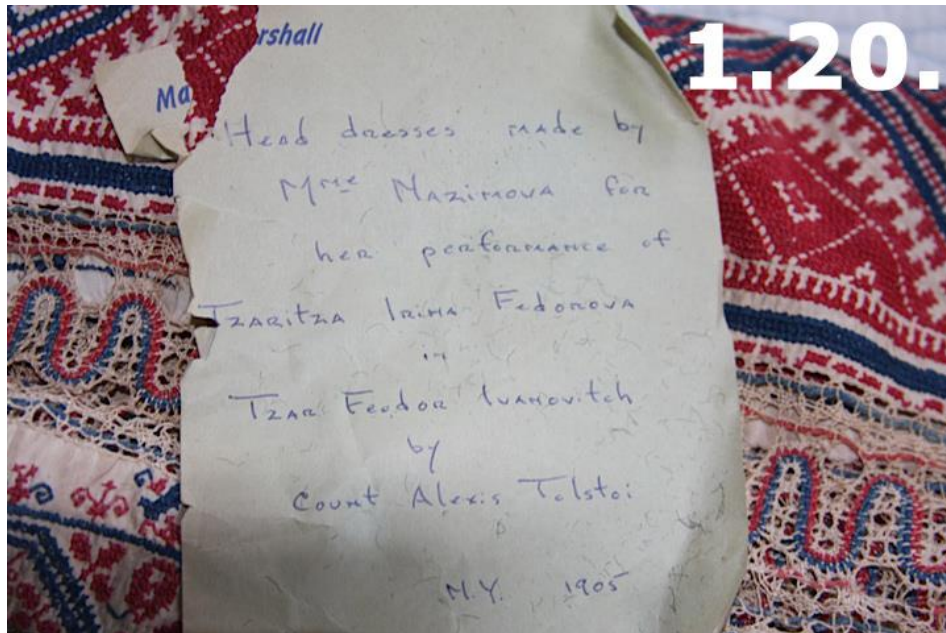 Ma rshall
1.20.
Head dresses made by
Mme Nazimova for
her performance of
Tzaritza Irina Fedorova
in
Tzar Feodor Ivanovitch
by
Count Alexis Tolstoi
N.Y. 1905